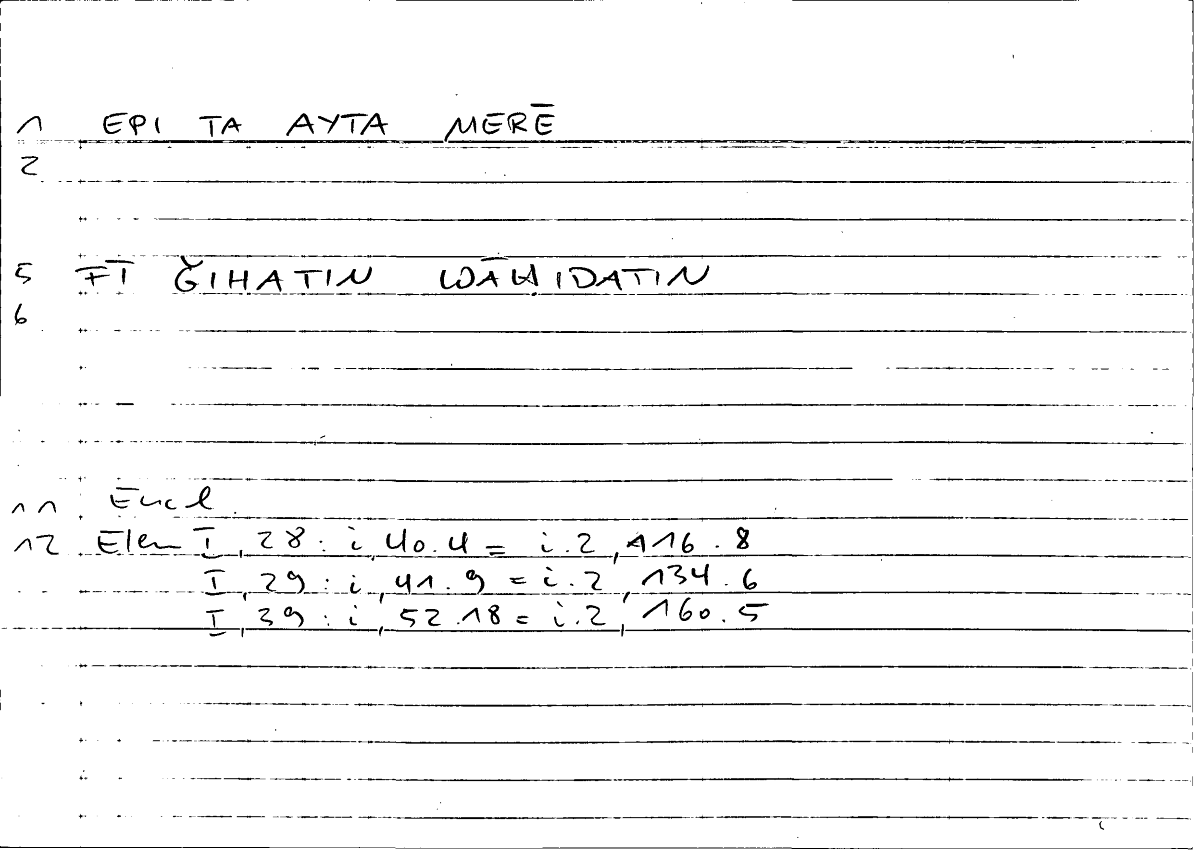 1 EPI TA AYTA MERĒ
2
5 FĪ ǦIHATIN WĀḤIDATIN
6
11 Eucl
12 Elem I, 28 : i, 40.4 = i.2, 116.8
I, 29 : i, 41.9 = i.2, 134.6
I, 39 : i, 52.18 = i.2, 160.5